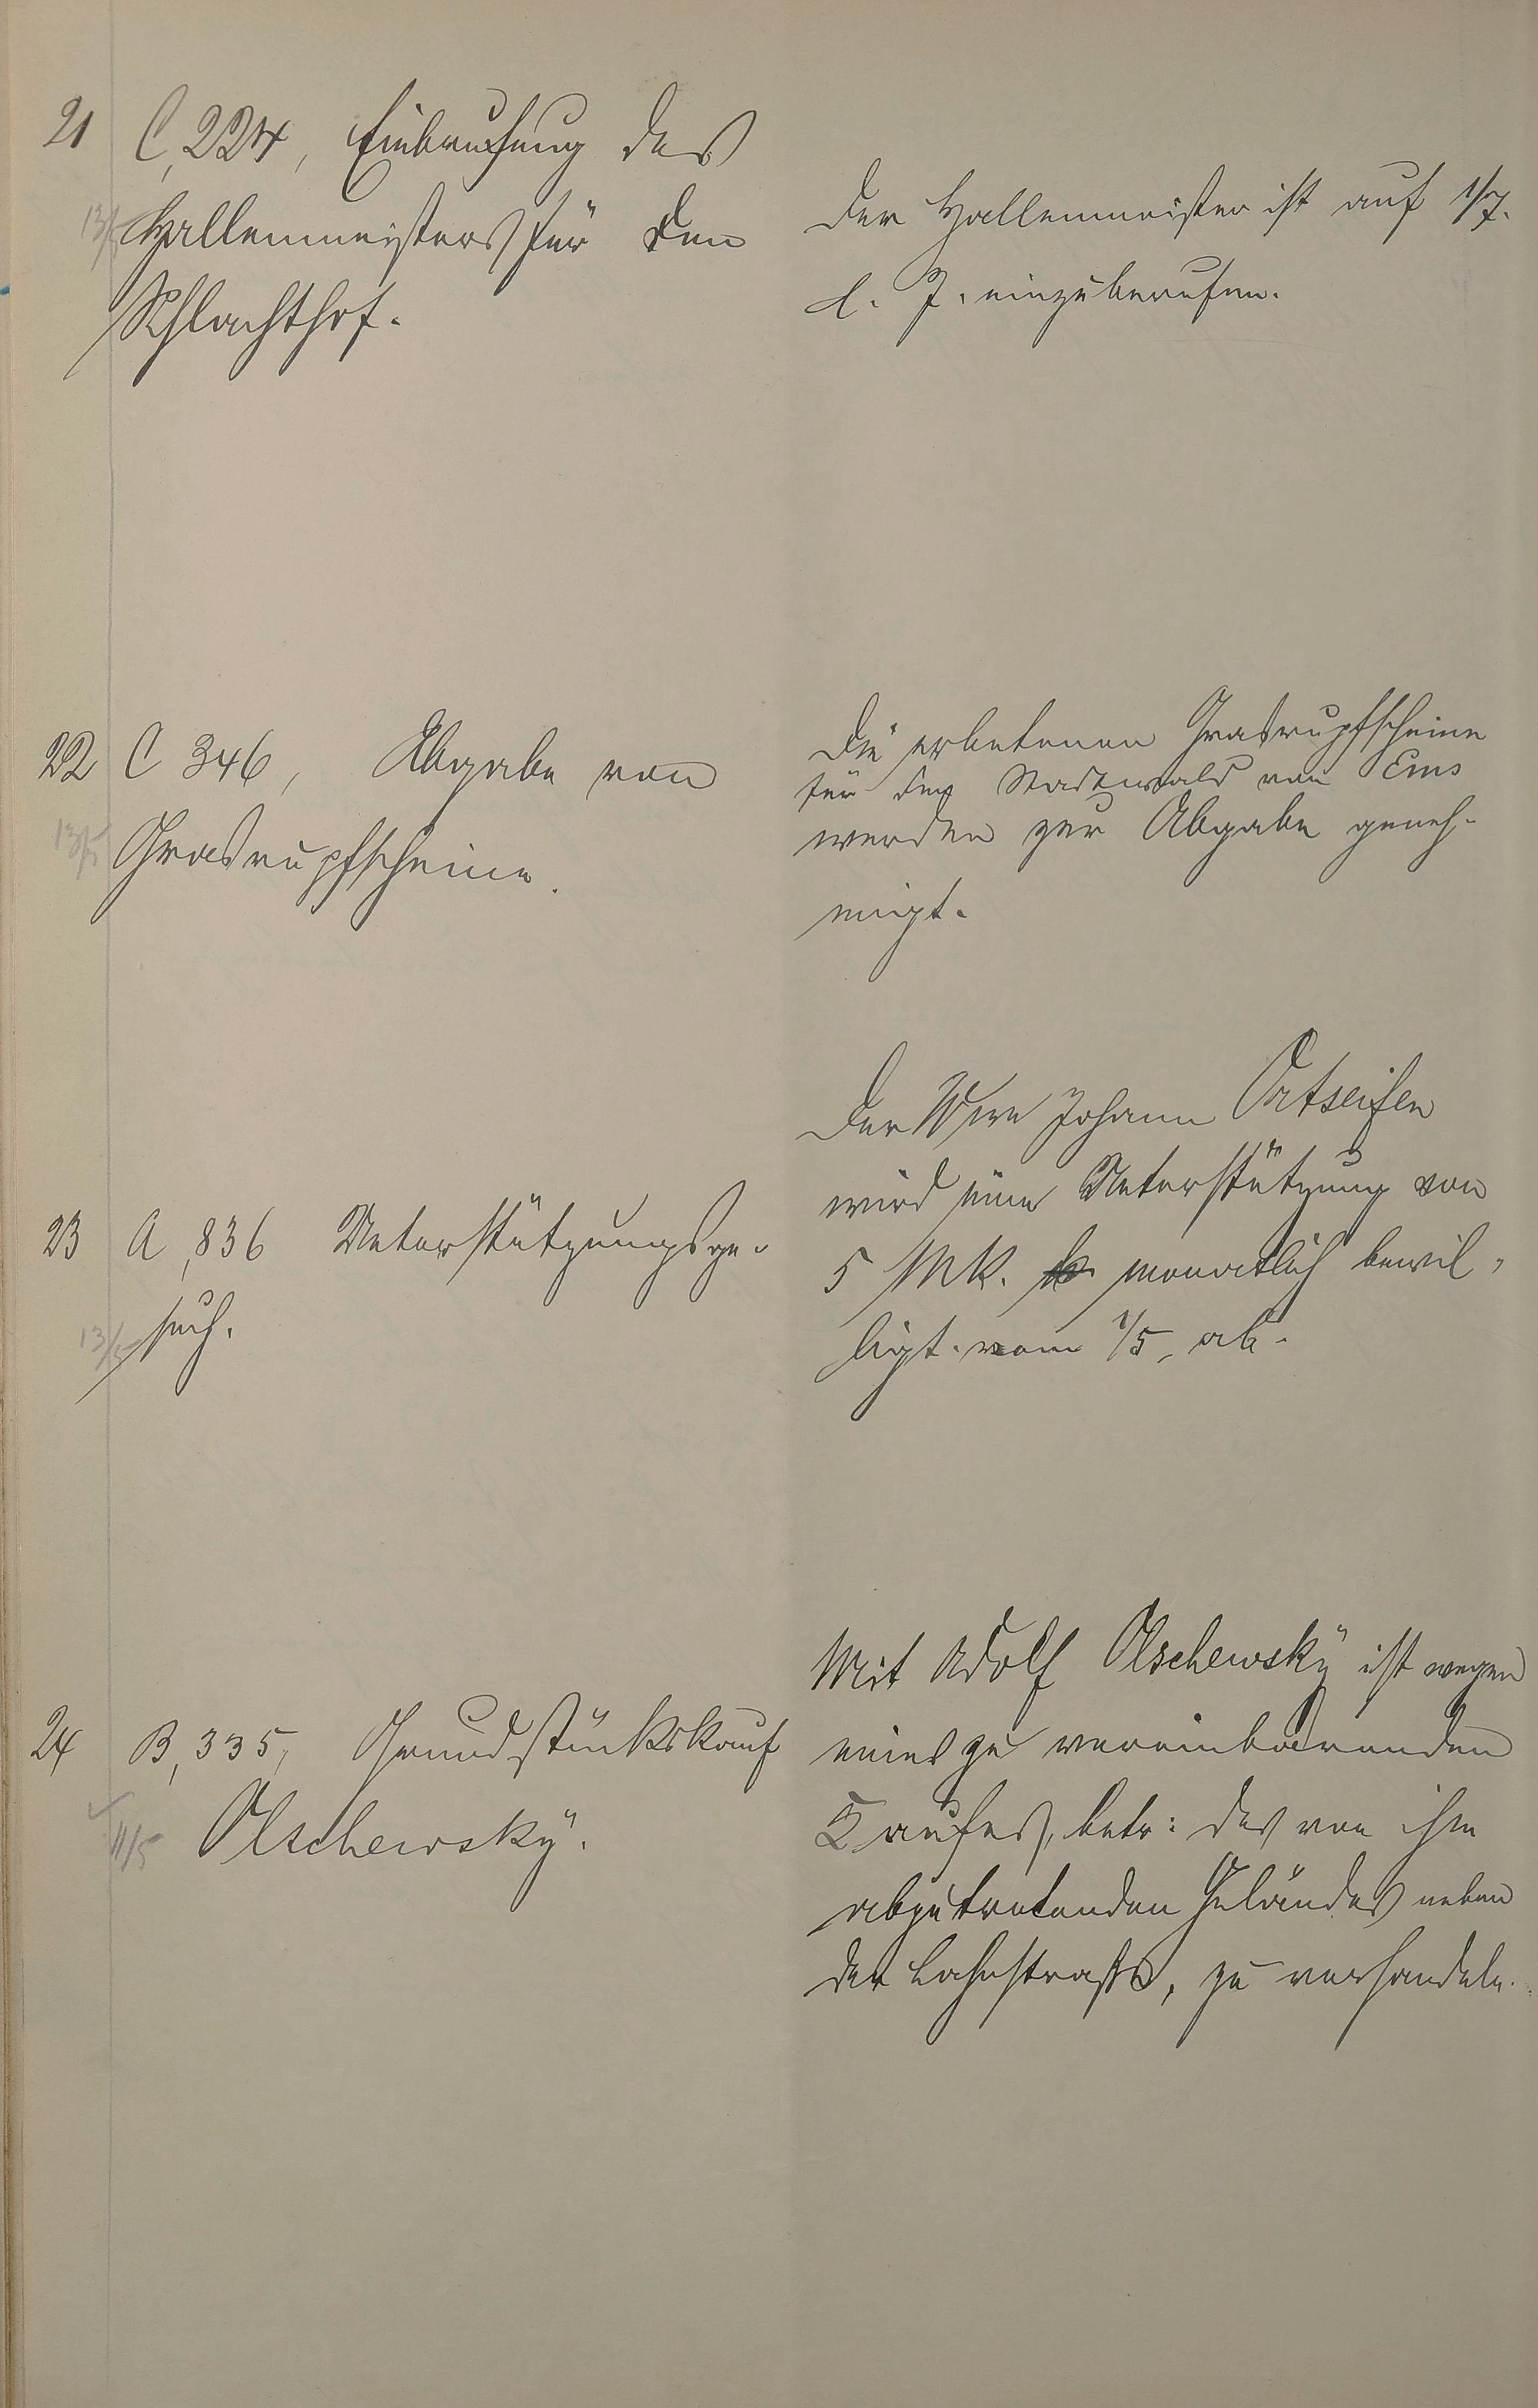 21 C, 224, Einberufung des
13/5 Hallenmeisters für den
Schlachthof.
Der Hallenmeister ist auf 1/7.
d. J. einzuberufen.
22 C 346, Abgabe von
13/5 Grasrupfscheine.
Die erbetenen Grasrupfscheine
für den Stadtwald von Ems
werden zur Abgabe geneh-
migt.
23 A, 836 Unterstützungsge-
13/5 such.
Der Wwe Johann Ortseifen
wird eine Unterstützung von
5 Mk. monatlich bewil-
ligt. vom 1/5. ab.
24 B, 335, Grundstückskauf
11/5 Olschewsky.
Mit Adolf Olschewsky ist wegen
eines zu vereinbarenden
Kaufes, betr: des von ihm
abzutretenden Geländes neben
der Lahnstraße, zu verhandeln.